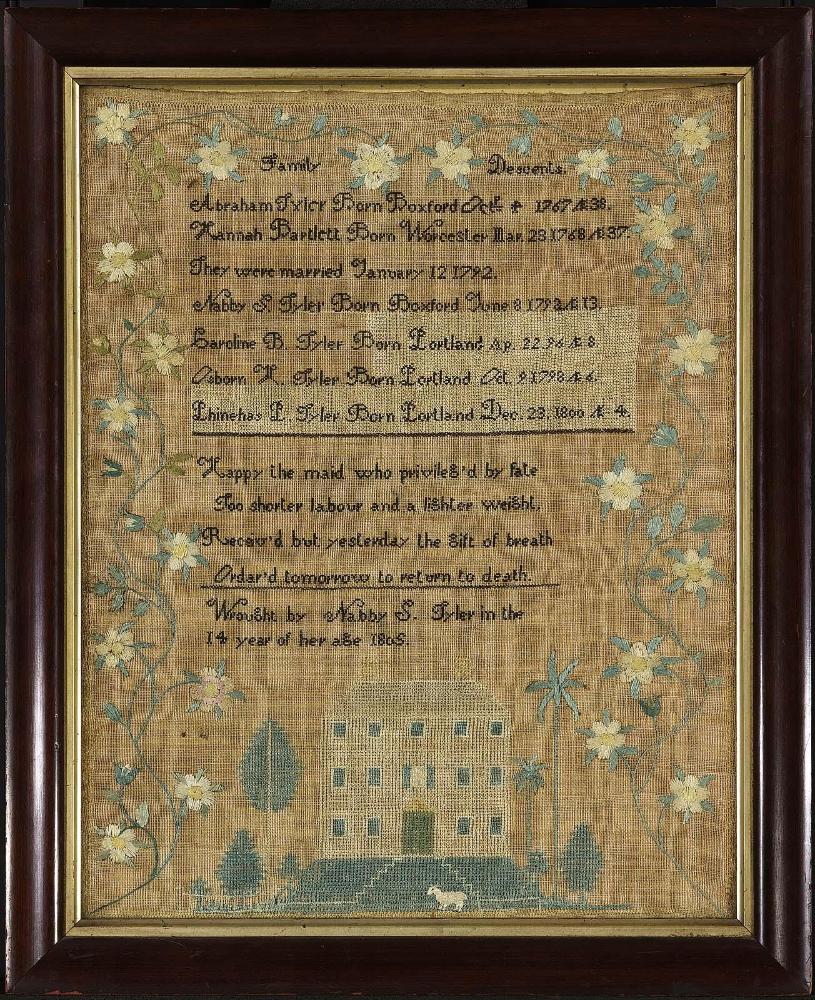 Family Descents.
Abraham Tyler Born Boxford Oct. 4 1767 Æ 38.
Hannah Bartlett Born Worcester Mar. 23 1768 Æ 37.
They were married January 12 1792.
Nabby S. Tyler Born Boxford June 8 1792 Æ 13.
Caroline B. Tyler Born Portland Ap. 22 96 Æ 8
Osborn H. Tyler Born Portland Oct. 9 1798 Æ 6.
Phinehas P. Tyler Born Portland Dec. 23. 1800 Æ 4.
Happy the maid who privileg'd by fate
Too shorter labour and a lighter weight.
Recaiv'd but yesterday the gift of breath
Ordar'd tomorrow to return to death.
Wrought by Nabby S. Tyler in the
14 year of her age 1805.